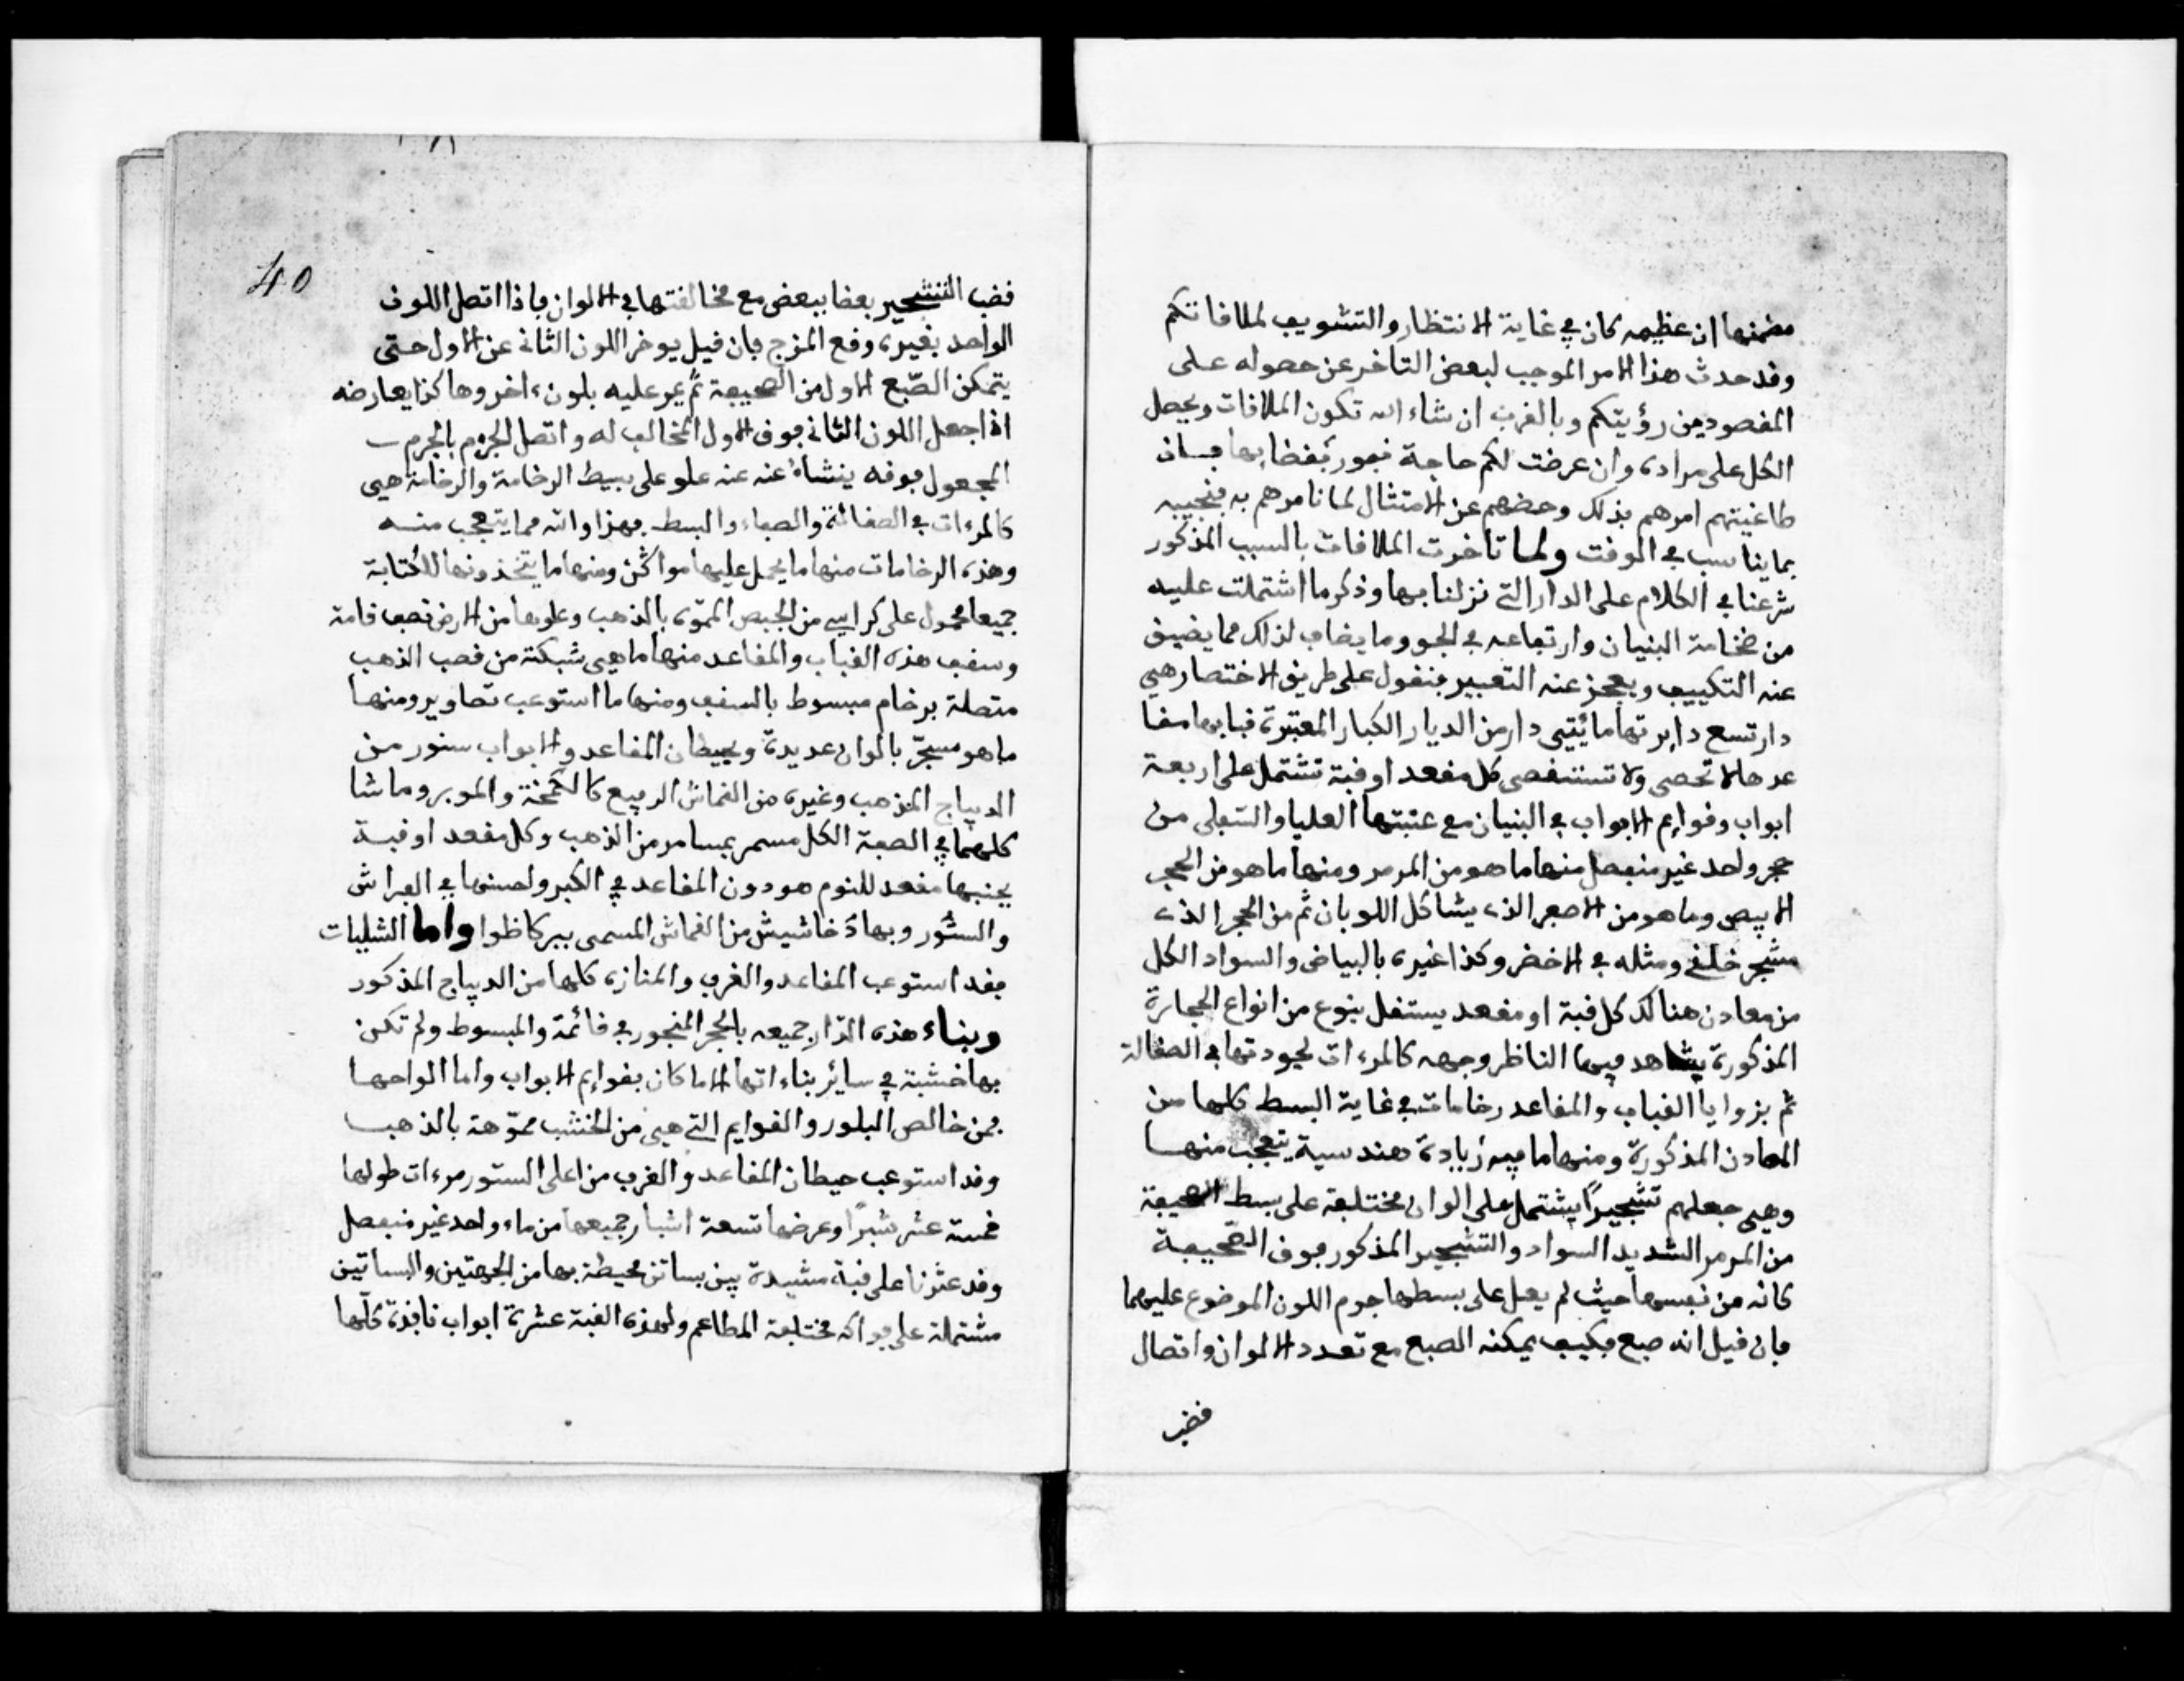 مضمنها ان عظيمه كان في غاية الانتظار والتشويف لملافاتكم
وفد حدث هذا الامر الموجب لبعض التاخر عن حصوله على
المفصود من رؤيتكم وبالفرب ان شاء الله تكون الملافات ويحصل
الكل على مراده وان عرضت لكم حاجة فبور تفضا بها فان
طاغيتهم امرهم بذلك وحضهم عن الامتثال لما نامرهم به فنجيبه
بما يناسب في الوفت ولما تاخرت الملافات بالسبب المذكور
شرعنا في الكلام على الدار التي نزلنا بها وذكر ما اشتملت عليه
من ضخامة البنيان وارتفاعه في الجو وما يضاف لذلك مما يضيق
عنه التكييف ويعجز عنه التعبير فنفول على طريق الاختصار هي
دار تسع دايرتها مائتي دار من الديار الكبار المعتبرة فبابها مفا
عدها لا تحصى ولا تستفصى كل مفعد او فبة تشتمل على اربعة
ابواب وفوايم الابواب في البنيان مع عتبتها العليا والسفلى من
حجر واحد غير منفصل منها ما هو من المرمر ومنها ما هو من الحجر
الابيض وما هو من الاصفر الذي يشاكل اللوبان ثم من الحجر الذي
مشجر خلفي ومثله في الاخضر وكذا غيره بالبياض والسواد الكل
من معادن هنالك كل فبة او مفعد يستفل بنوع من انواع الحجارة
المذكورة يشاهد فيها الناظر وجهه كالمرءات لجودتها في الصفالة
ثم بزوايا الفباب والمفاعد رخامات في غاية البسط كلها من
المعادن المذكورة ومنها ما فيه زيادة هندسية يتعجب منها
وهي جعلهم تشجيرا يشتمل على الوان مختلفة على بسط الصحيفة
من المرمر الشديد السواد والتشجير المذكور فوق الصحيفة
كانه من نفسها حيث لم يعل على بسطها جوم اللون الموضوع عليها
فان فيل انه صبغ فكيف يمكنه الصبغ مع تعدد الالوان واتصال
فضب
40
فضب التشجير بعضا ببعض مع مخالفتها في الالوان فاذا اتصل اللون
الواحد بغيره وفع المزج فان فيل يوخر اللون الثاني عن الاول حتى
يتمكن الصبغ الاول من الصحيفة ثم يمر عليه بلون ءاخر وهاكذا يعارضه
اذا جعل اللون الثاني فوق الاول المخالف له واتصل الجرم بالجرم
المجعول فوفه ينشاه عنه علو على بسيط الرخامة والرخامة هي
كالمرءات في الصفالة والصفاء والبسط فهذا والله مما يتعجب منه
وهذه الرخامات منها ما يحمل عليها مواكن ومنها ما يتخذونها للكتابة
جميعا محمول على كراسي من الجبص المموه بالذهب وعلوها من الارض نصف فامة
وسفف هذه الفباب والمفاعد منها ما هي شبكة من فضب الذهب
متصلة برخام مبسوط بالسفف ومنها ما استوعب تصاوير ومنها
ما هو مسجر بالوان عديدة وبحيطان المفاعد والابواب ستور من
الديباج المذهب وغيره من الفماش الرفيع كالكمخة والموبر وما شا
كلهما في الصفة الكل مسمر بمسامر من الذهب وكل مفعد او فبة
بجنبها مفعد للنوم هو دون المفاعد في الكبر واحسنها في الفراش
والستور وبها دخاشيش من الفماش المسمى ببركاظوا واما الشليات
ففد استوعب المفاعد والغرب والمنازه كلها من الديباج المذكور
وبناء هذه الدار جميعه بالحجر المنجور في فائمة والمبسوط ولم تكن
بها خشبة في سائر بناءاتها الا ما كان بفوايم الابواب واما الواحها
فمن خالص البلور والفوايم التي هي من الخشب مموهة بالذهب
وفد استوعب حيطان المفاعد والغرب من اعلى الستور مرءات طولها
خمسة عشر شبرا وعرضها تسعة اشبار جميعها من ماء واحد غير منفصل
وفد عثرنا على فبة مشيدة بين بساتن محيطة بها من الجهتين والبساتين
مشتملة على فواكه مختلفة المطاعم ولهذه الفبة عشرة ابواب نافذة كلها